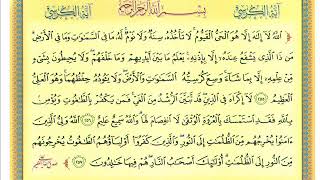 آية الكرسي بسم الله الرحمن الرحيم آية الكرسي
الله لا إله إلا هو الحي القيوم لا تأخذه سنة ولا نوم له ما في السموات وما في الأرض
من ذا الذي يشفع عنده إلا بإذنه يعلم ما بين أيديهم وما خلفهم ولا يحيطون بشيء
من علمه إلا بما شاء وسع كرسيه السموات والأرض ولا يئوده حفظهما وهو العلي
العظيم ٢٥٥ لا إكراه في الدين قد تبين الرشد من الغي فمن يكفر بالطاغوت ويؤمن
بالله فقد استمسك بالعروة الوثقى لا انفصام لها والله سميع عليم ٢٥٦ الله ولي الذين
ءامنوا يخرجهم من الظلمات إلى النور والذين كفروا أولياؤهم الطاغوت يخرجونهم
من النور إلى الظلمات أولئك أصحاب النار هم فيها خالدون ٢٥٧